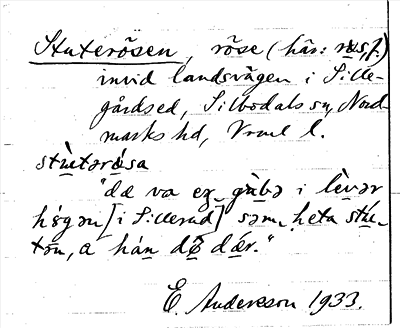 Stuterösen, röse (här: røs, f.)
invid landsvägen i Sille-
gårdsed, Silbodals sn, Nord-
marks hd, Vrml l.
stùtərø̀sa
"dæ va en gùbə i lèvər
høgən [i Sillerud] sәm heta stú-
tən, a hán dø̄ dǽr."
E. Andersson 1933.